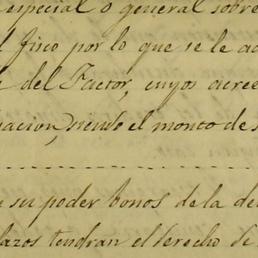 especial o general sobre
l fisco por lo que se le a
del Factor, cuyos acree
acion, siendo el monto de s
su poder bonos de la de
lazos tendran el derecho de